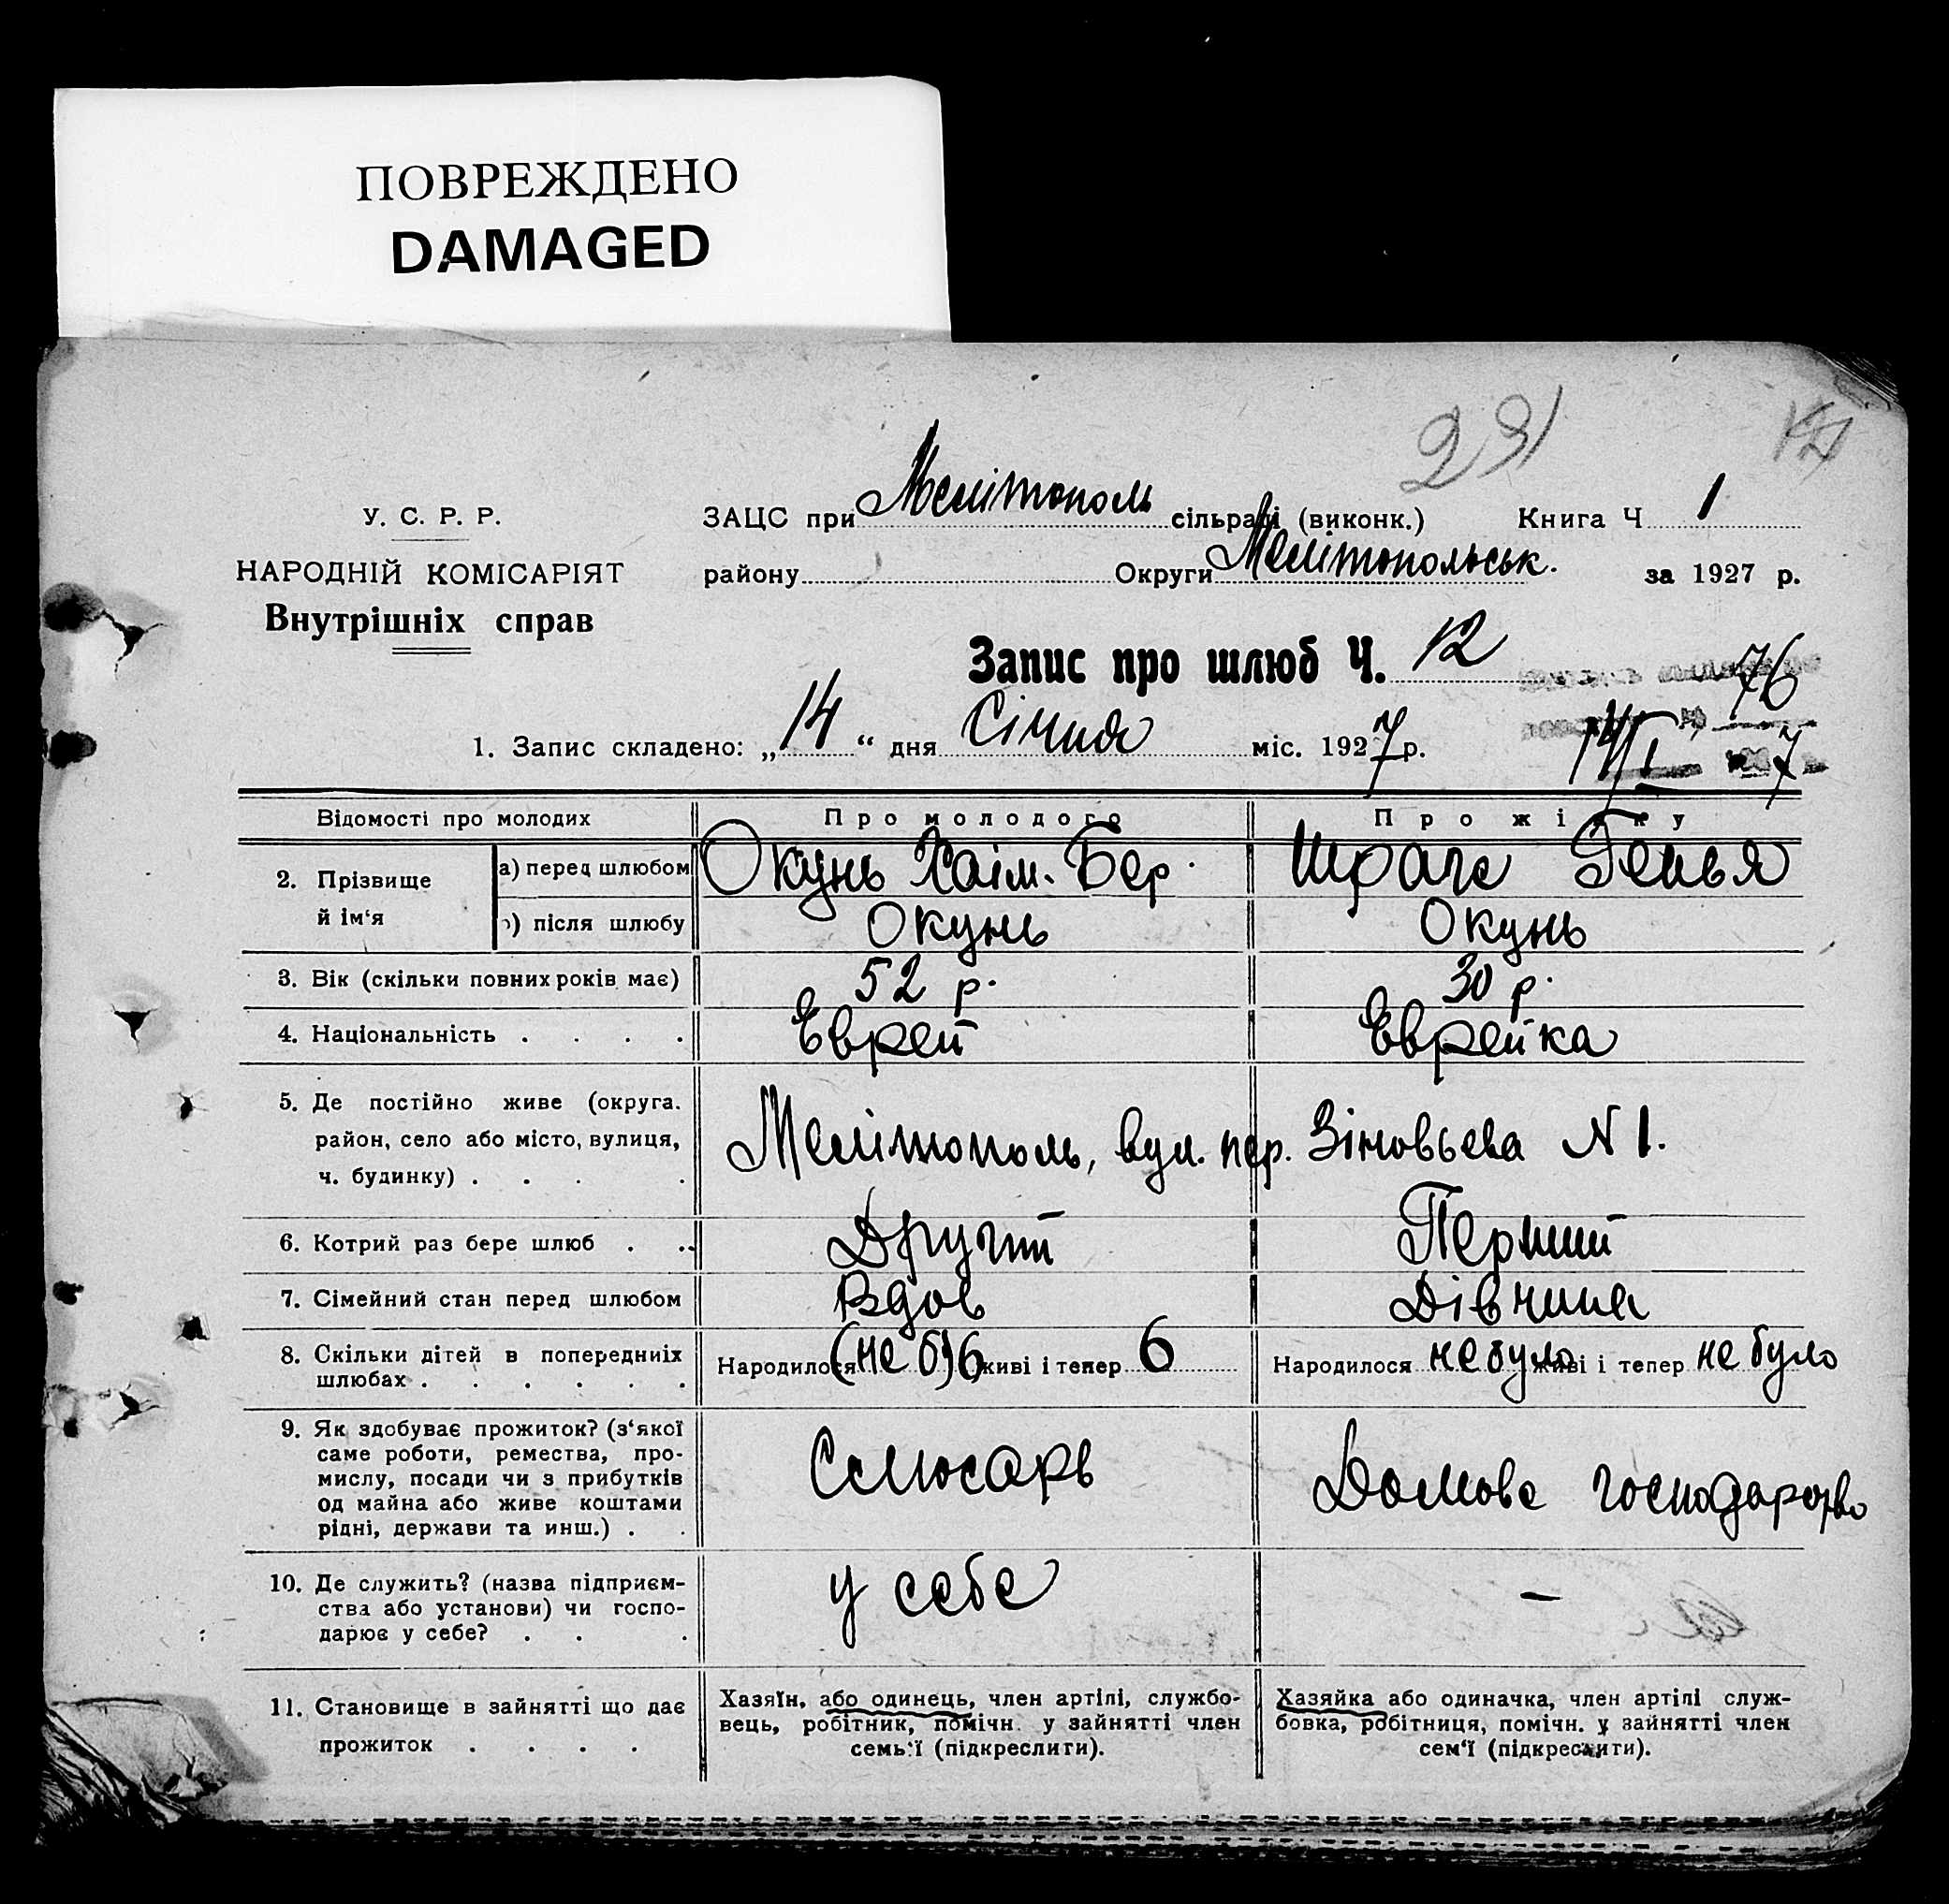 ПОВРЕЖДЕНО
DAMAGED
231
У. С. Р. Р.
НАРОДНІЙ КОМІСАРІЯТ
Внутрішніх справ
ЗАЦС при Мелітополь сільраді (виконк.) Книга Ч 1
району Округи Мелітопольськ. за 1927 р.
Запис про шлюб Ч. 12
76
1. Запис складено: „14“ дня Січня міс. 1927 р.
14/I 7
Відомості про молодих Про молодого Про жінку
2. Прізвище й ім‘я
а) перед шлюбом Окунь Хаім. Бер. Шраге Генья
б) після шлюбу Окунь Окунь
3. Вік (скільки повних років має) 52 р. 30 р.
4. Національність . . . . Еврей Еврейка
5. Де постійно живе (округа.
район, село або місто, вулиця,
ч. будинку) . . . .
Мелітополь, вул. пер. Зіновьева N 1.
6. Котрий раз бере шлюб . .. Другий Перший
7. Сімейний стан перед шлюбом Вдов Дівчина
8. Скільки дітей в попередниіх
шлюбах . . . . . .
Народилося (не б) 6 живі і тепер 6 Народилося не було живі і тепер не було
9. Як здобуває прожиток? (з‘якої
саме роботи, ремества, про-
мислу, посади чи з прибутків
од майна або живе коштами
рідні, держави та инш.) . .
Слюсарь Домове господарство
10. Де служить? (назва підприєм-
ства або установи) чи госпо-
дарює у себе? . . .
у себе —
11. Становище в зайнятті що дає
прожиток . . . .
Хазяїн, або одинець, член артілі, службо-
вець, робітник, помічн. у зайнятті член
семь‘ї (підкреслити).
Хазяйка або одиначка, член артілі служ-
бовка, робітниця, помічн. у зайнятті член
сем‘ї (підкреслити).